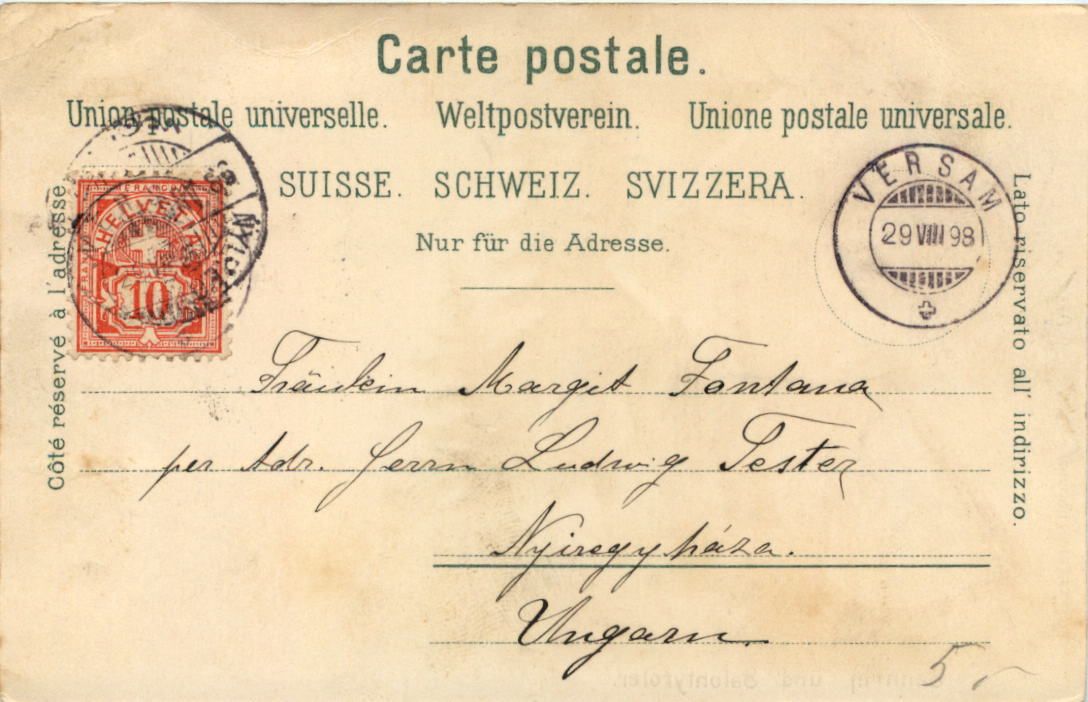 Carte postale.
Union postale universelle. Weltpostverein. Unione postale universale.
SUISSE. SCHWEIZ. SVIZZERA.
Nur für die Adresse.
Côté réservé à l'adresse
Lato riservato all' indirizzo.
FRANCO
HELVETIA
10
VERSAM
29 VIII 98
Fräulein Margit Fontana
per Adr. Herrn Ludwig Tester
Nyiregyháza.
Ungarn.
5